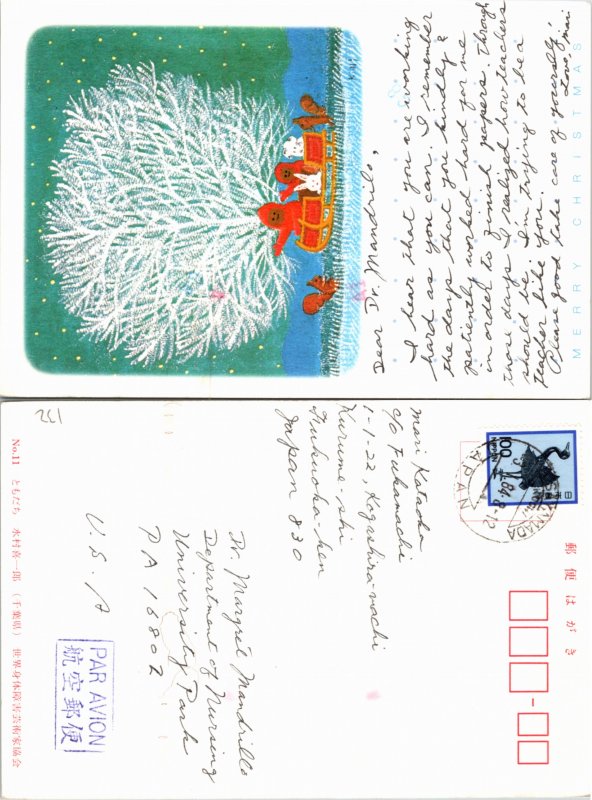 Dear Dr. Mandrillo,
I hear that you are working
hard as you can. I remember
the days that you kindly &
patiently worked hard for me
in order to finish papers. Through
those days I realized how teachers
should be. I'm trying to be a
teacher like you.
Please good take care of yourself,
Love, Mari
MERRY CHRISTMAS
132
No.11 ともだち 木村喜一郎 (千葉県) 世界身体障害芸術家協会
Mari Kataoka
c/o Fukamachi
1-1-22, Kogashira-machi
Kurume-shi
Fukuoka-ken
Japan 830
Dr. Margret Mandrillo
Department of Nursing
University Park
PA 16802
U.S.A
PAR AVION
航空郵便
郵便はがき
100
NIPPON
日本郵便
YAMADA
JAPAN